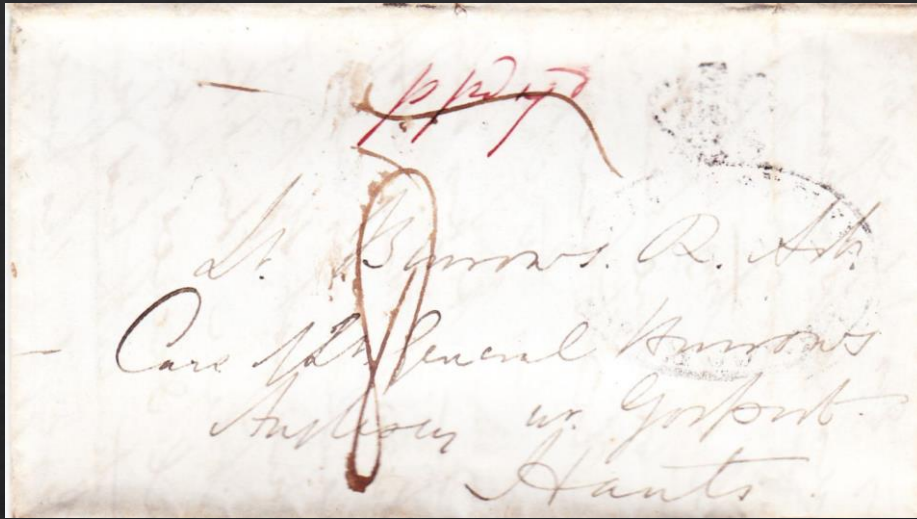 ppd 1/8
8
Lt. Burrows. R. Art.
Care of Lt General Burrows
Anglesey nr. Gosport.
Hants.